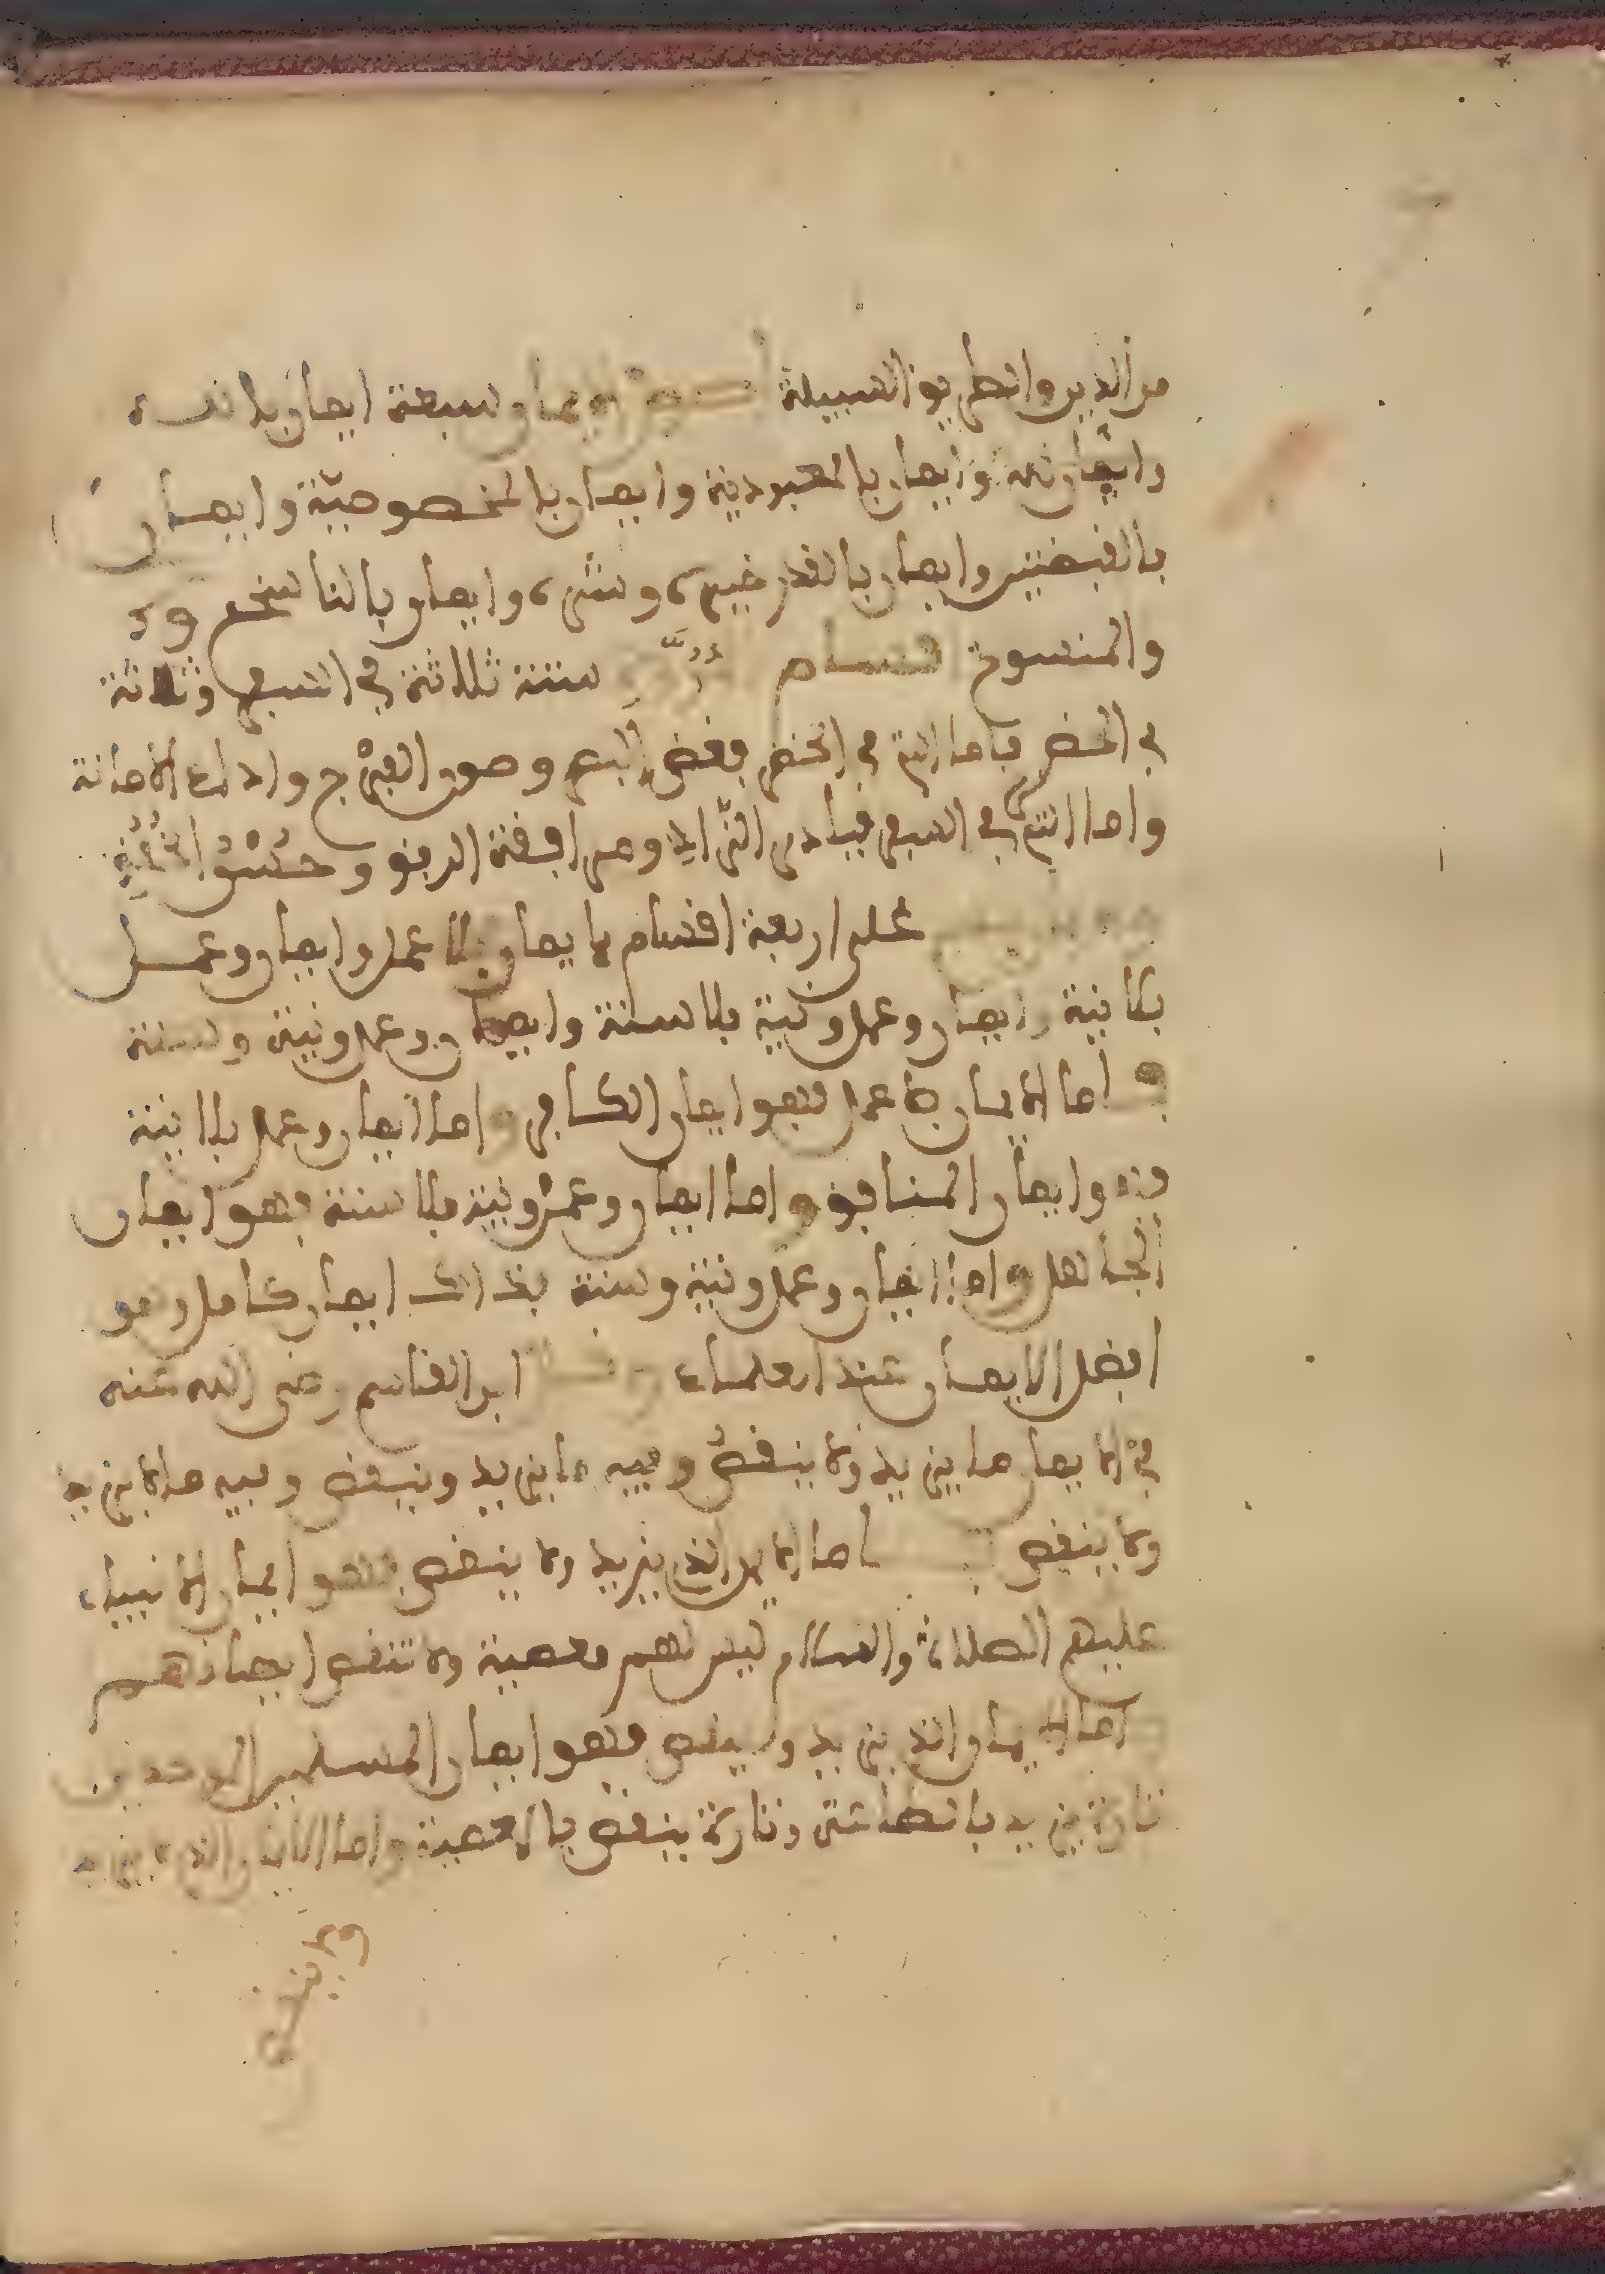 من الدين والطريق السبيلة الايمان سبعة ايمان بالله
وايمان له وايمان بالعبودية وايمان بالخصوصية وايمان
بالقبضتين وايمان بالقدر خيره وشره وايمان بالناسخ
والمنسوخ اقسام ستة ثلاثة في السفر وثلاثة
في الحضر فاما التي في الحضر فغض البصر وصون الفرج واداء الامانة
واما التي في السفر فبادر الزاد ومرافقة الرفق وحسن الخلق
على اربعة اقسام ايمان بلا عمل وايمان وعمل
بلا نية وايمان وعمل ونية بلا سنة وايمان وعمل ونية وسنة
اما الايمان بلا عمل فهو ايمان الكافر واما ايمان وعمل بلا نية
فهو ايمان المنافق واما ايمان وعمل ونية بلا سنة فهو ايمان
الجاهل واما ايمان وعمل ونية وسنة فذالك ايمان كامل وهو
افضل الايمان عند العلماء ابن القاسم رضي الله عنه
في الايمان ما يزيد ولا ينقص وفيه ما يزيد وينقص وفيه ما لا يزيد
ولا ينقص اما الايمان الذي يزيد ولا ينقص فهو ايمان الانبياء
عليهم الصلاة والسلام ليس لهم معصية ولا تنقص ايمانهم
اما الايمان الذي يزيد وينقص فهو ايمان المسلمين الموحدين
تارة يزيد بالطاعة وتارة ينقص بالمعصية واما الايمان الذي لا يزيد
ولا ينقص